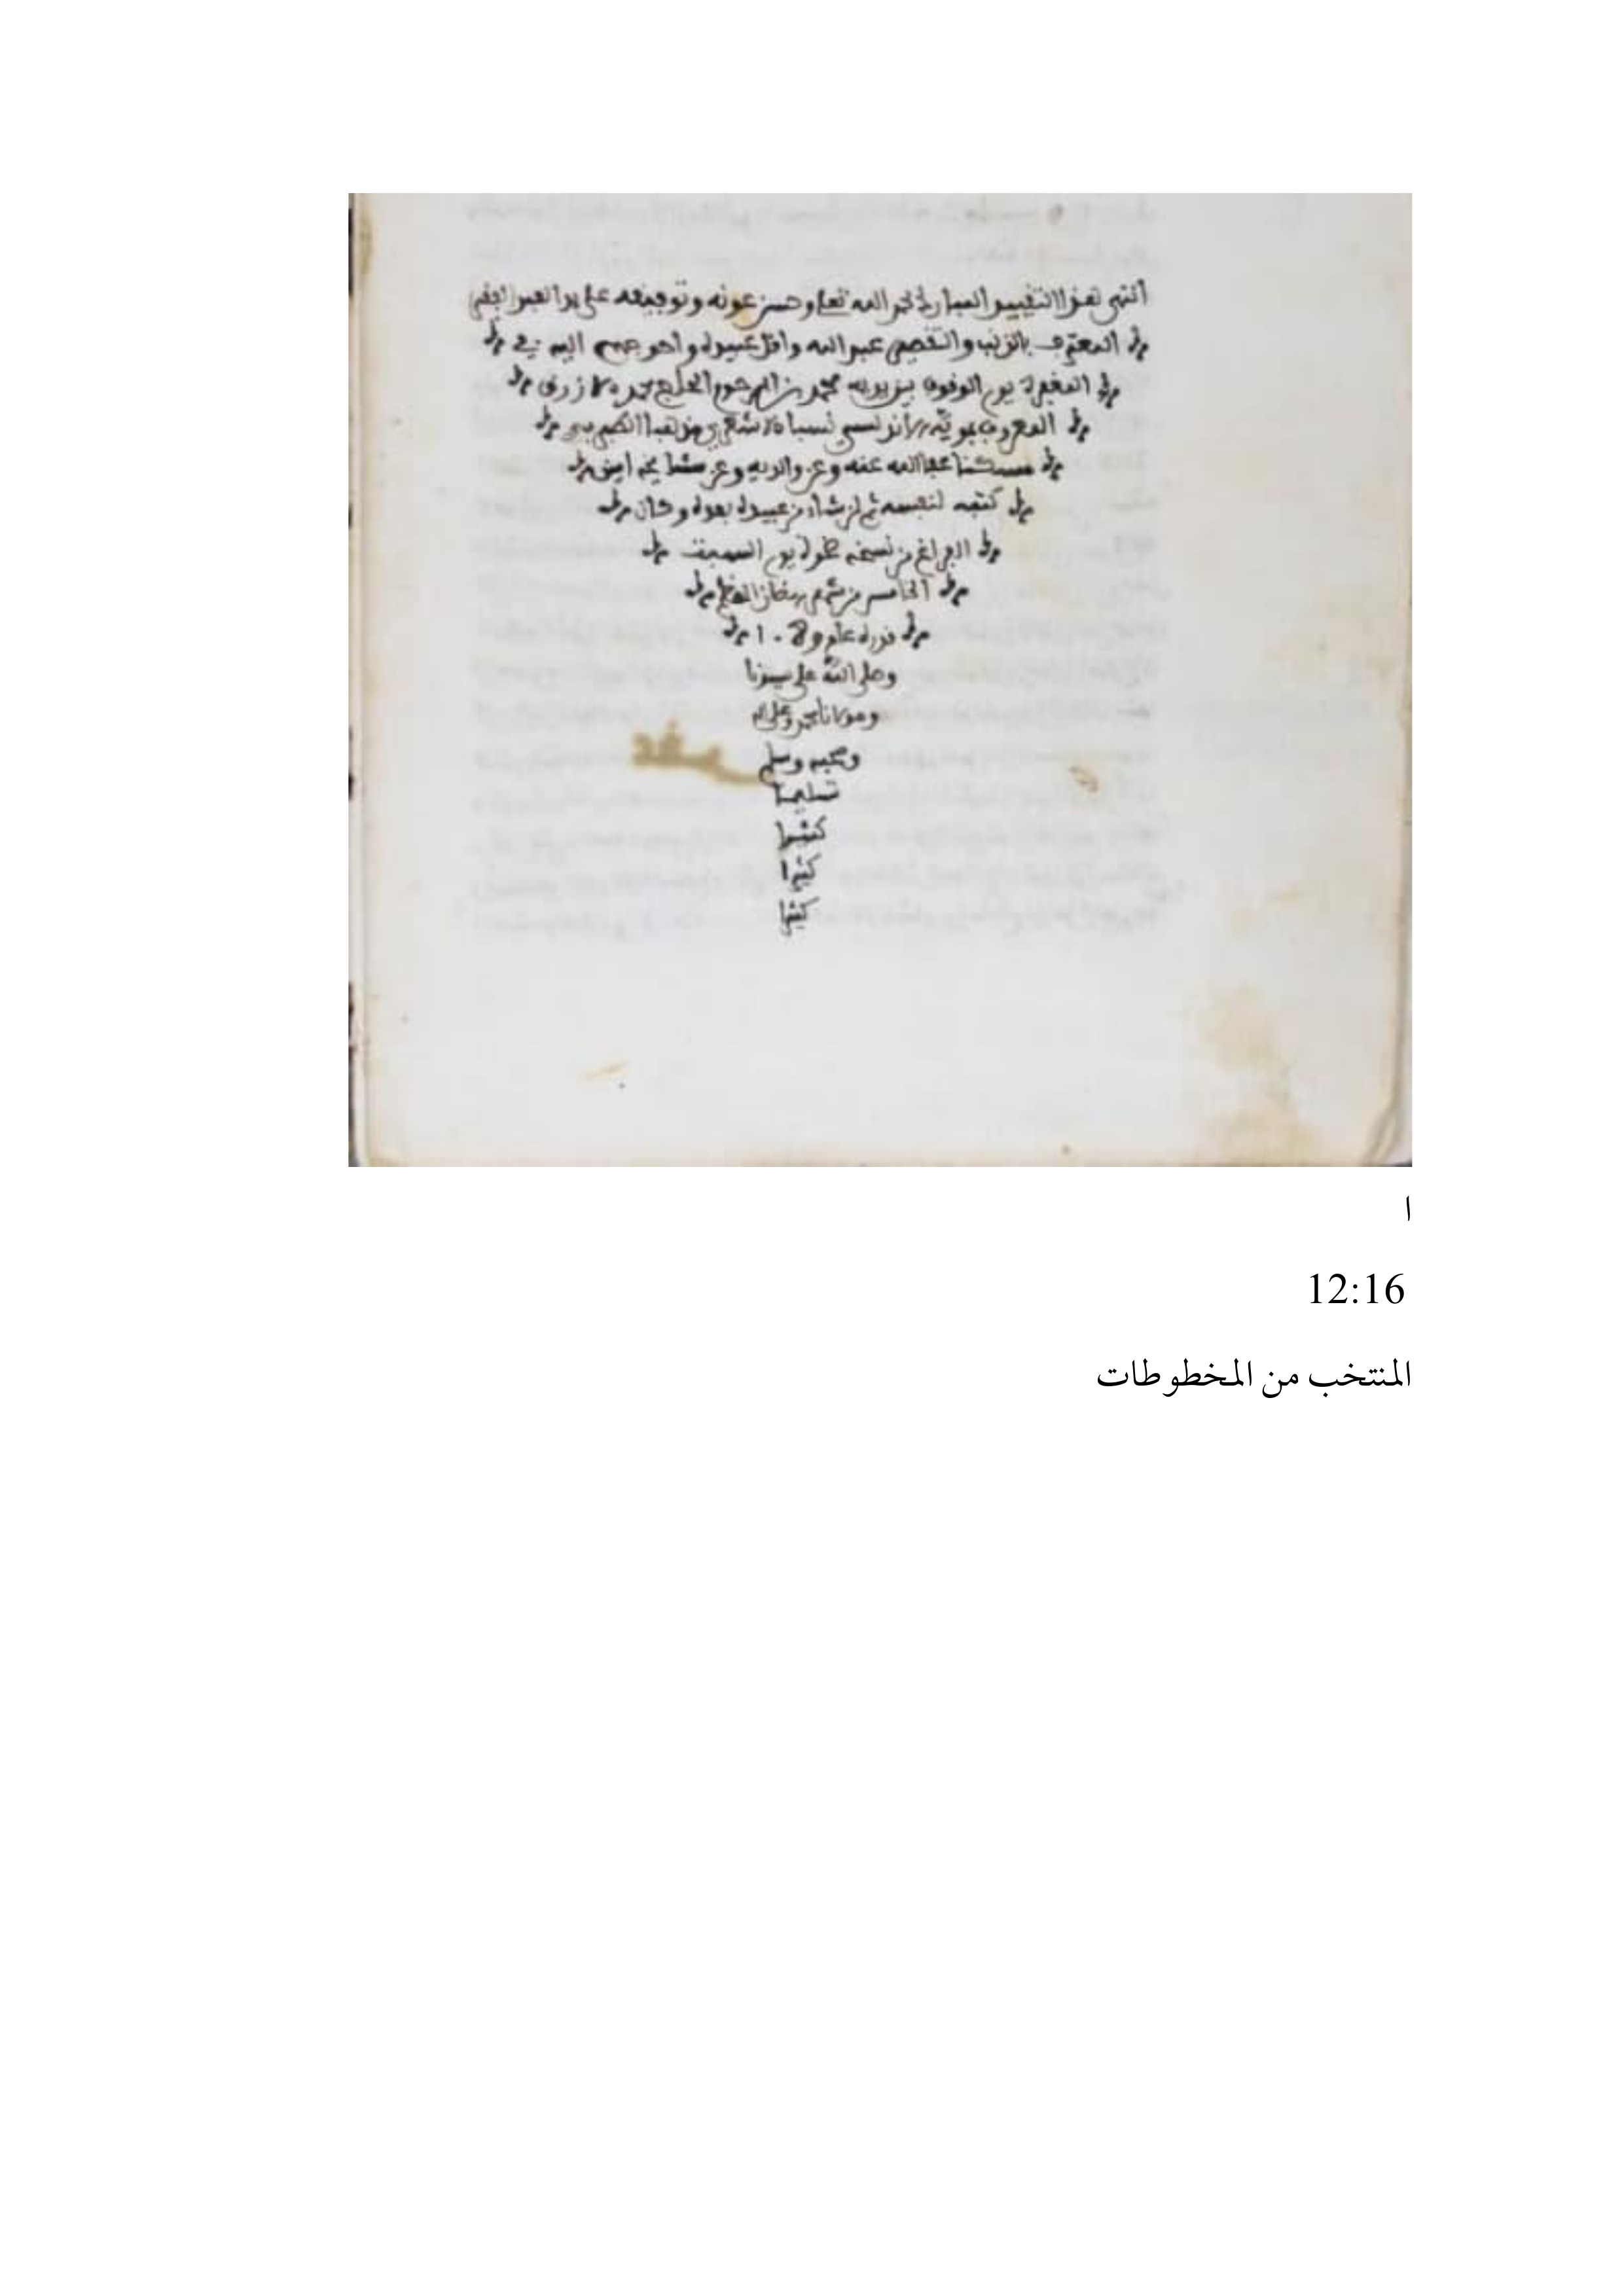 انتهى هذا التقييد المبارك بحمد الله تعلى وحسن عونه وتوفيقه على يد العبد الفقير
المعترف بالذنب والتقصير عبد الله واقل عبيده واحوجهم اليه في
المغفرة يوم الوقوف بين يديه محمد بن المرحوم الحاج محمد الازرق
المعروف الاندلسي نسبا الاشعري مذهبا
مسكنا عفا الله عنه وعن والديه وعن مشايخه امين
كتبه لنفسه ثم لمن شاء من عبيده بعده وكان
الفراغ من نسخه يوم السبت
الخامس من شهر رمضان المعظم
عام
وصلى الله على سيدنا
ومولانا محمد وعلى اله
وصحبه وسلم
تسليما
كثيرا
كثيرا
كثيرا
ا
12:16
المنتخب من المخطوطات